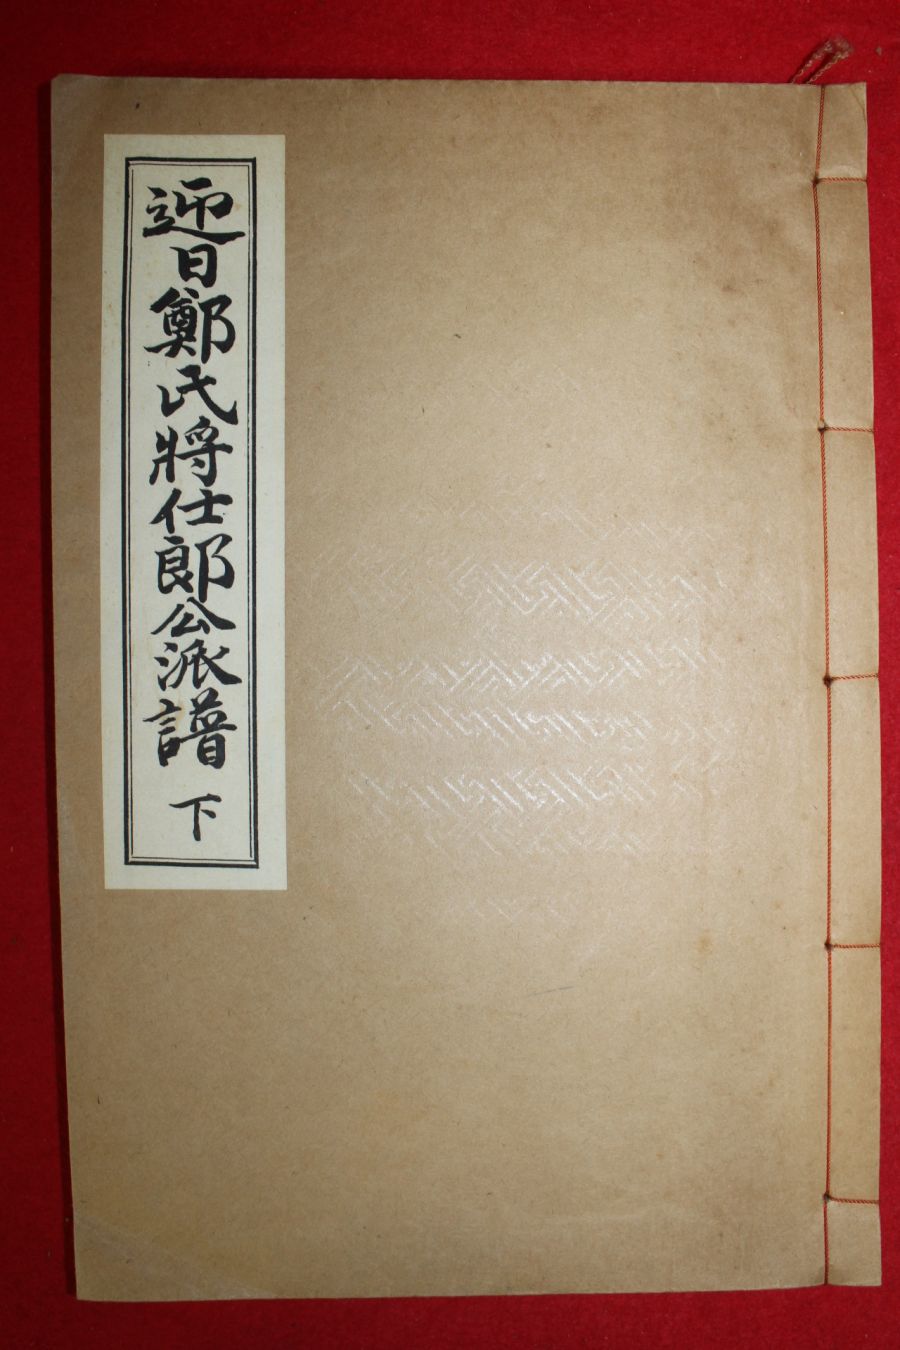 迎日鄭氏將仕郎公派譜 下